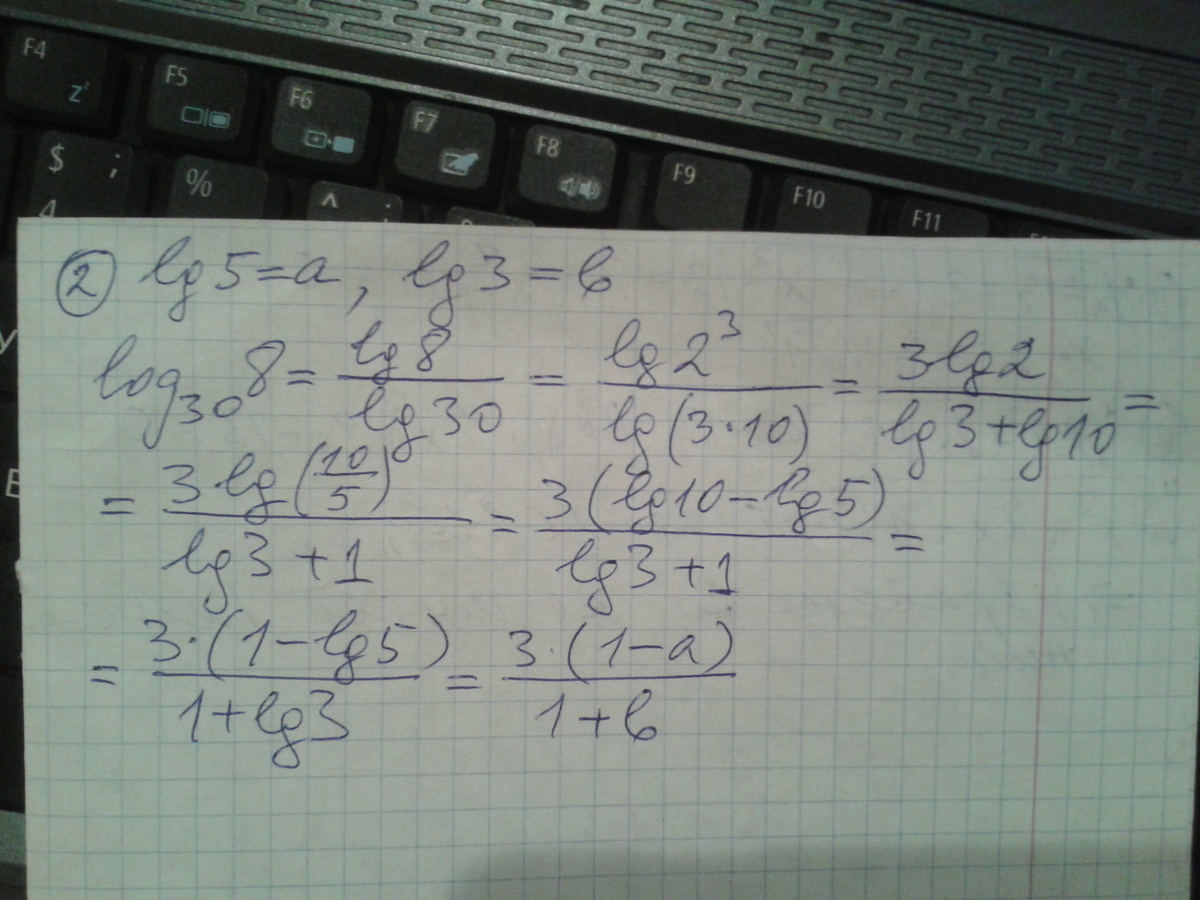 F4 F5 F6 F7 F8 F9 F10 F11
z
$ ; % ^ :
4
② lg5=a, lg3=b
log₃₀8 = lg8/lg30 = lg2³/lg(3·10) = 3lg2/(lg3+lg10) =
= 3lg(10/5)/(lg3+1) = 3(lg10-lg5)/(lg3+1) =
= 3·(1-lg5)/(1+lg3) = 3·(1-a)/(1+b)